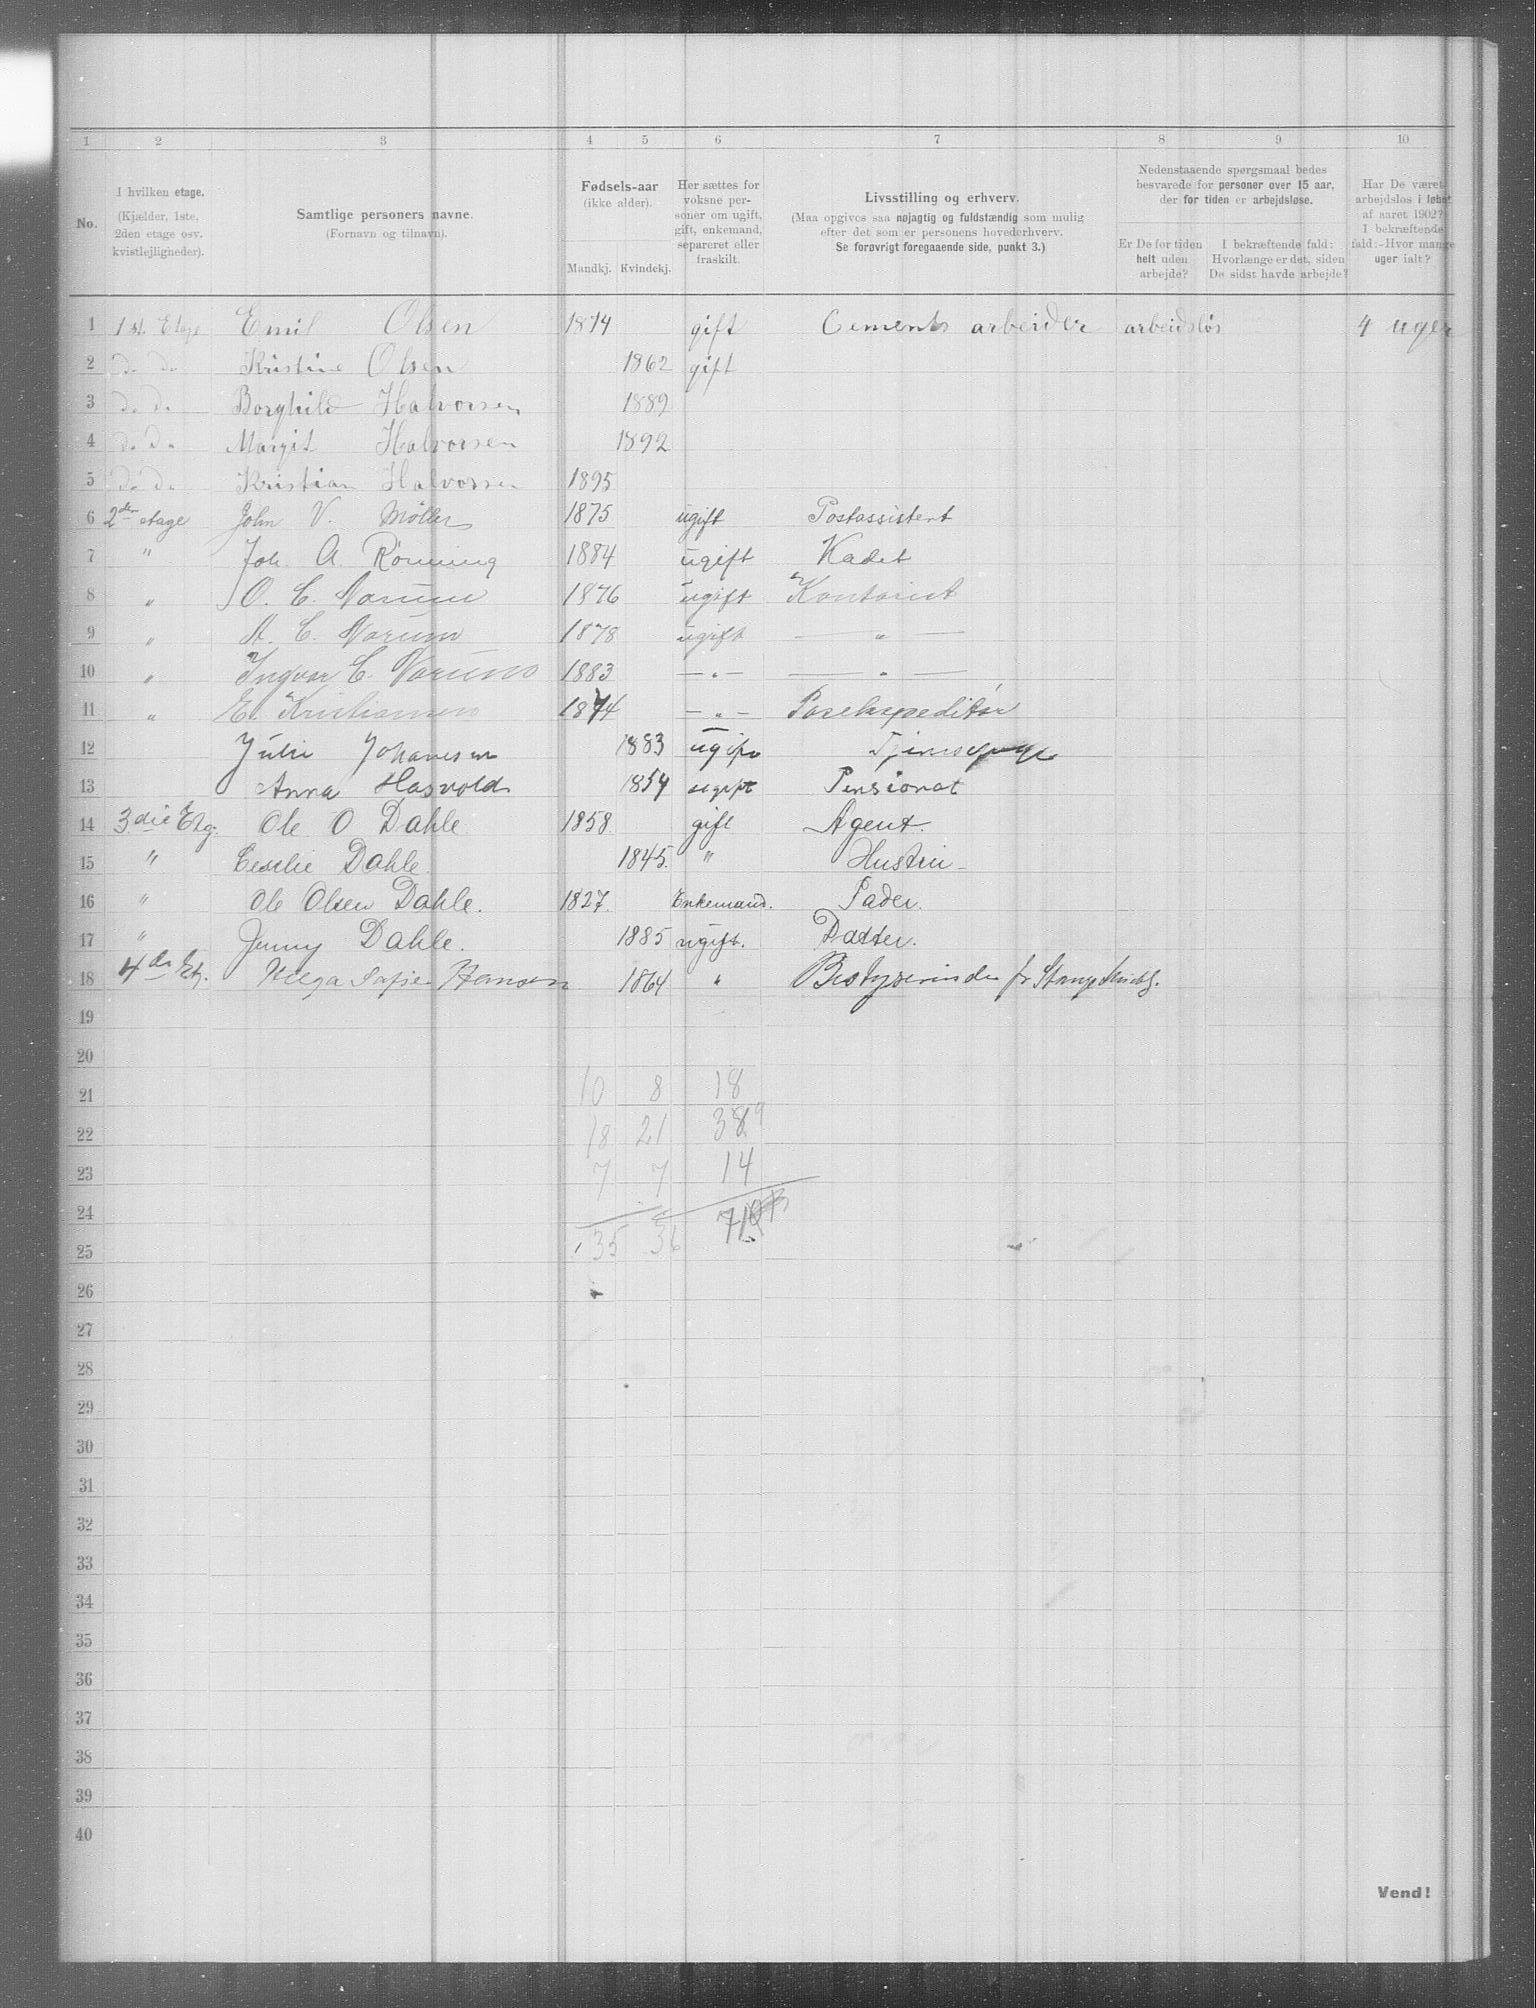 1 2 3 4 5 6 7 8 9 10
No.
I hvilken etage.
(Kjælder, 1ste,
2den etage osv.
kvistlejligheder).
Samtlige personers navne.
(Fornavn og tilnavn).
Fødsels-aar
(ikke alder).
Mandkj. Kvindekj.
Her sættes for
voksne per-
soner om ugift,
gift, enkemand,
separeret eller
fraskilt.
Livsstilling og erhverv.
(Maa opgives saa nøjagtig og fuldstændig som mulig
efter det som er personens hovederhverv.
Se forøvrigt foregaaende side, punkt 3.)
Nedenstaaende spørgsmaal bedes
besvarede for personer over 15 aar,
der for tiden er arbejdsløse.
Er De for tiden
helt uden
arbejde?
I bekræftende fald:
Hvorlænge er det, siden
De sidst havde arbejde?
Har De været
arbejdsløs i løbet
af aaret 1902?
I bekræftende
fald:-Hvor mange
uger ialt?
1 1st. Etage Emil Olsen 1874 gift Cements arbeider arbeidsløs 4 uger
2 do do Kristine Olsen 1862 gift
3 do do Borghild Halvorsen 1889
4 do do Margit Halvorsen 1892
5 do do Kristian Halvorsen 1895
6 2den etage John V. Møller 1875 ugift Postassistent
7 " Joh. A. Rönning 1884 ugift Kadet
8 " O. C. Narum 1876 ugift Kontorist
9 " A. C. Narum 1878 ugift — " —
10 " Ingvar C. Narum 1883 — " — — " —
11 " E. Kristiansen 1874 — " — Poseksspeditør
12 Julie Johansen 1883 ugift Tjenestepige
13 Anna Hasvold 1854 ugift Pensionat
14 3die Etg. Ole O Dahle 1858 gift Agent.
15 " Cecilie Dahle. 1845. " Hustru
16 " Ole Olsen Dahle. 1827. Enkemand. Fader.
17 " Jenny Dahle. 1885 ugift. Datter.
18 4de Etg. Helga Sofie Hansen 1864 " Bestyrerinde fr
19
20
21 10 8 18
22 18 21 389
23 7 7 14
24
25 35 36 71
26
27
28
29
30
31
32
33
34
35
36
37
38
39
40
Vend!